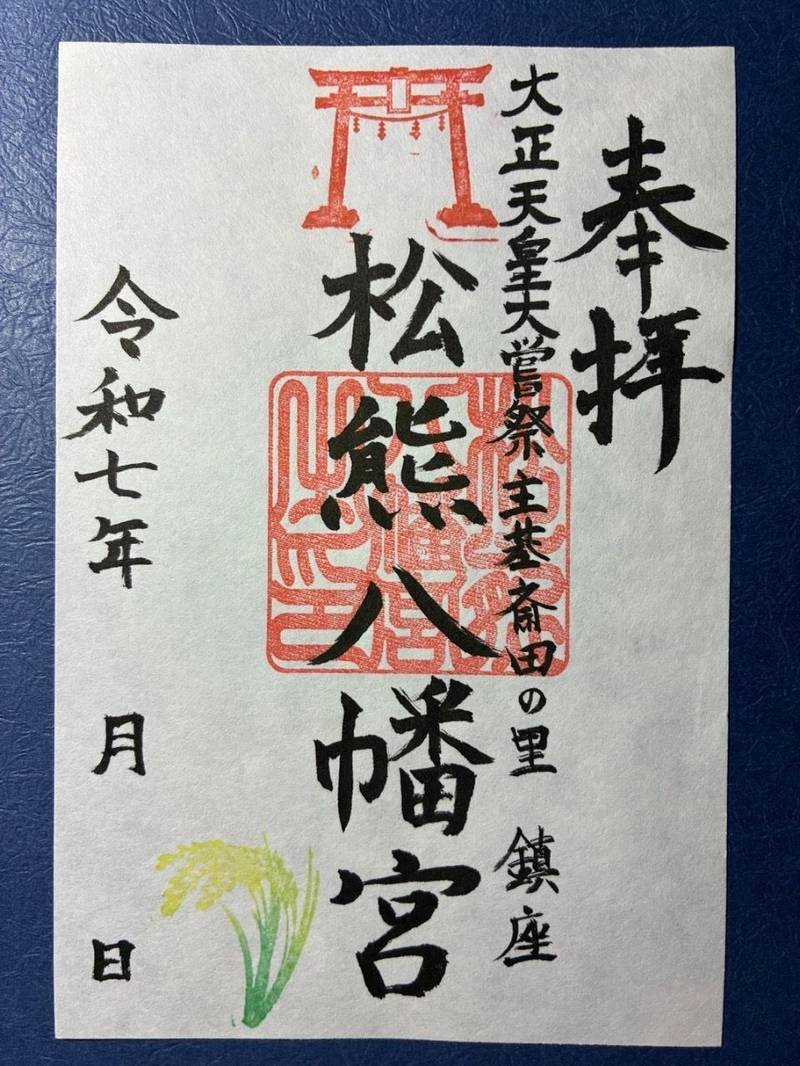 奉拝
大正天皇大嘗祭主基斎田の里 鎮座
松熊八幡宮
令和七年 月 日